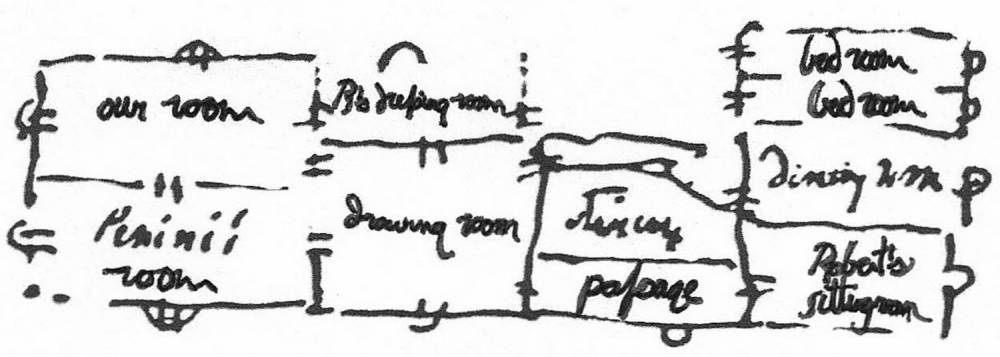 our room
R's dressing room
bed room
bed room
Penini's
room
drawing room
dining room
passage
Robert's
sitting room